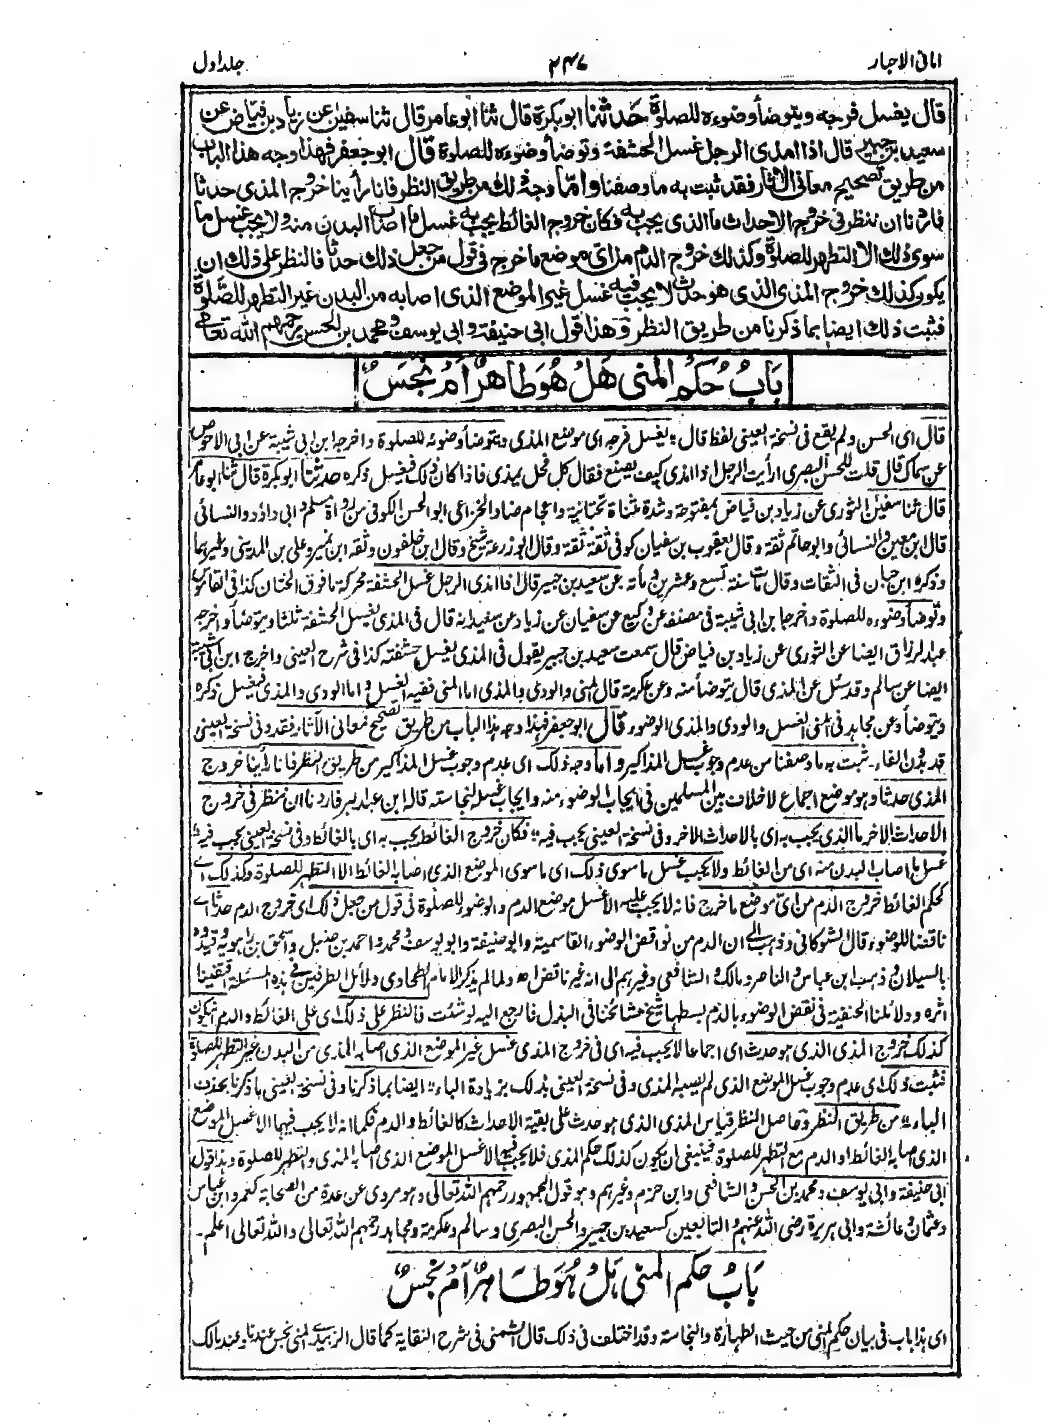 امانی الاحبار ۲۴۷ جلد اول
قال يغسل فرجه ويتوضأ وضوءه للصلوة حدثنا ابوبكرة قال ثنا ابوعامر قال ثنا سفين عن زياد بن فياض عن
سعيد بن جبير قال اذا امذى الرجل غسل الحشفة وتوضأ وضوءه للصلوة قال ابوجعفر فهذا وجه هذا الباب
من طريق تصحيح معانى الاثار فقد ثبت به ما وصفنا واما وجه ذلك من طريق النظر فانا رأينا خروج المذى حدثا
فاردنا ان ننظر فى خروج الاحداث ما الذى يجب به فكان خروج الغائط يجب به غسل ما اصاب البدن منه ولا يجب غسل ما
سوى ذلك الا التطهر للصلوة وكذلك خروج الدم من اى موضع ما خرج فى قول من جعل ذلك حدثا فالنظر على ذلك ان
يكون كذلك خروج المذى الذى هو حدث لا يجب فيه غسل غير الموضع الذى اصابه من البدن غير التطهر للصلوة
فثبت ذلك ايضا بما ذكرنا من طريق النظر وهذا قول ابى حنيفة وابى يوسف ومحمد بن الحسن رحمهم الله تعالى
بَابُ حُكْمِ المنى هَلْ هُوَ طَاهِرٌ اَمْ نَجَسٌ
قال اى الحسن ولم يقع فى نسخة العينى لفظ قال، يغسل فرجه اى موضع المذى ويتوضأ وضوئه للصلوة واخرجه ابن ابى شيبة عن ابى الاحوص
عن سماك قال قلت للحسن البصرى ارأيت الرجل اذا امذى كيف يصنع فقال كل فحل يمذى فاذا كان ذلك فيغسل ذكره حدثنا ابوبكرة قال ثنا ابوعامر
قال ثنا سفين الثورى عن زياد بن فياض بمفتوحة وشدة مثناة تحتانية واعجام ضاد الخزاعى ابو الحسن الكوفى من رواة مسلم وابى داؤد والنسائى
قال ابن معين والنسائى وابو حاتم ثقة وقال يعقوب بن سفيان كوفى ثقة ثقة وقال ابو زرعة شيخ وقال ابن خلفون وثقه ابن نمير وعلى بن المدينى وغيرهما
وذكره ابن حبان فى الثقات وقال مات سنة تسع وعشرين ومأة عن سعيد بن جبير قال اذا امذى الرجل غسل الحشفة محركة ما فوق الختان كذا فى القاموس
وتوضأ وضوءه للصلوة واخرجه ابن ابى شيبة فى مصنفه عن وكيع عن سفيان عن زياد عن سعيد انه قال فى المذى يغسل الحشفة ثلثا ويتوضأ واخرجه
عبد الرزاق ايضا عن الثورى عن زياد بن فياض قال سمعت سعيد بن جبير يقول فى المذى يغسل حشفته كذا فى شرح العينى واخرج ابن ابى شيبة
ايضا عن سالم وقد سئل عن المذى قال يتوضأ منه وعن عكرمة قال المنى والودى والمذى اما المنى ففيه الغسل واما الودى والمذى فيغسل ذكره
ويتوضأ وعن مجاهد فى المنى الغسل والودى والمذى الوضوء قال ابو جعفر فهذا وجه هذا الباب من طريق تصحيح معانى الآثار فقد وفى نسخة العينى
قد بدون الفاء، ثبت به ما وصفنا من عدم وجوب غسل المذاكير واما وجه ذلك اى عدم وجوب غسل المذاكير من طريق النظر فانا رأينا خروج
المذى حدثا وهو موضع اجماع لا خلاف بين المسلمين فى ايجاب الوضوء منه وايجاب غسله لنجاسته قاله ابن عبد البر فاردنا ان ننظر فى خروج
الاحداث الاخر ما الذى يجب به اى بالاحداث الاخر وفى نسخة العينى يجب فيه، فكان خروج الغائط يجب به اى بالغائط وفى نسخة العينى يجب فيه
غسل ما اصاب البدن منه اى من الغائط ولا يجب غسل ما سوى ذلك اى ما سوى الموضع الذى اصابه الغائط الا التطهر للصلوة وكذلك اى
كحكم الغائط خروج الدم من اى موضع ما خرج فانه لا يجب عليه الا غسل موضع الدم والوضوء للصلوة فى قول من جعل ذلك اى خروج الدم حدثا اى
ناقضا للوضوء قال الشوكانى وذهب الى ان الدم من نواقض الوضوء القاسمية وابو حنيفة وابو يوسف ومحمد واحمد بن حنبل واسحق بن راهويه وقيدوه
بالسيلان وذهب ابن عباس والناصر ومالك والشافعى وغيرهم الى انه غير ناقض اھ ولما لم يذكر الامام الطحاوى دلائل الطرفين فى هذه المسئلة اقتفينا
اثره ودلائلنا الحنفية فى نقض الوضوء بالدم بسطها شيخ مشائخنا فى البذل فارجع اليه لو شئت فالنظر على ذلك اى على الغائط والدم ان يكون
كذلك خروج المذى الذى هو حدث اى اجماعا لا يجب فيه اى فى خروج المذى غسل غير الموضع الذى اصابه المذى من البدن غير التطهر للصلوة
فثبت ذلك اى عدم وجوب غسل الموضع الذى لم يصبه المذى وفى نسخة العينى بذلك بزيادة الباء، ايضا بما ذكرنا وفى نسخة العينى ما ذكرنا بحذف
الباء، من طريق النظر وحاصل النظر قياس المذى الذى هو حدث على بقية الاحداث كالغائط والدم فكما انه لا يجب فيهما الا غسل الموضع
الذى اصابه الغائط او الدم مع التطهر للصلوة فينبغى ان يكون كذلك حكم المذى فلا يجب فيه الا غسل الموضع الذى اصابه المذى والتطهر للصلوة وهذا قول
ابى حنيفة وابى يوسف ومحمد بن الحسن والشافعى وابن حزم وغيرهم وهو قول الجمهور رحمهم الله تعالى وهو مروى عن عدة من الصحابة كعمر وابن عباس
وعثمان وعائشة وابى هريرة رضى الله عنهم والتابعين كسعيد بن جبير والحسن البصرى وسالم وعكرمة ومجاهد رحمهم الله تعالى والله تعالى اعلم۔
بَابُ حكم المنى هَلْ هُوَ طَاهِرٌ اَمْ نَجَسٌ
اى هذا باب فى بيان حكم المنى من حيث الطهارة والنجاسة وقد اختلف فى ذلك قال الشمنى فى شرح النقاية كما قال الزبيدى المنى نجس عندنا وعند مالك